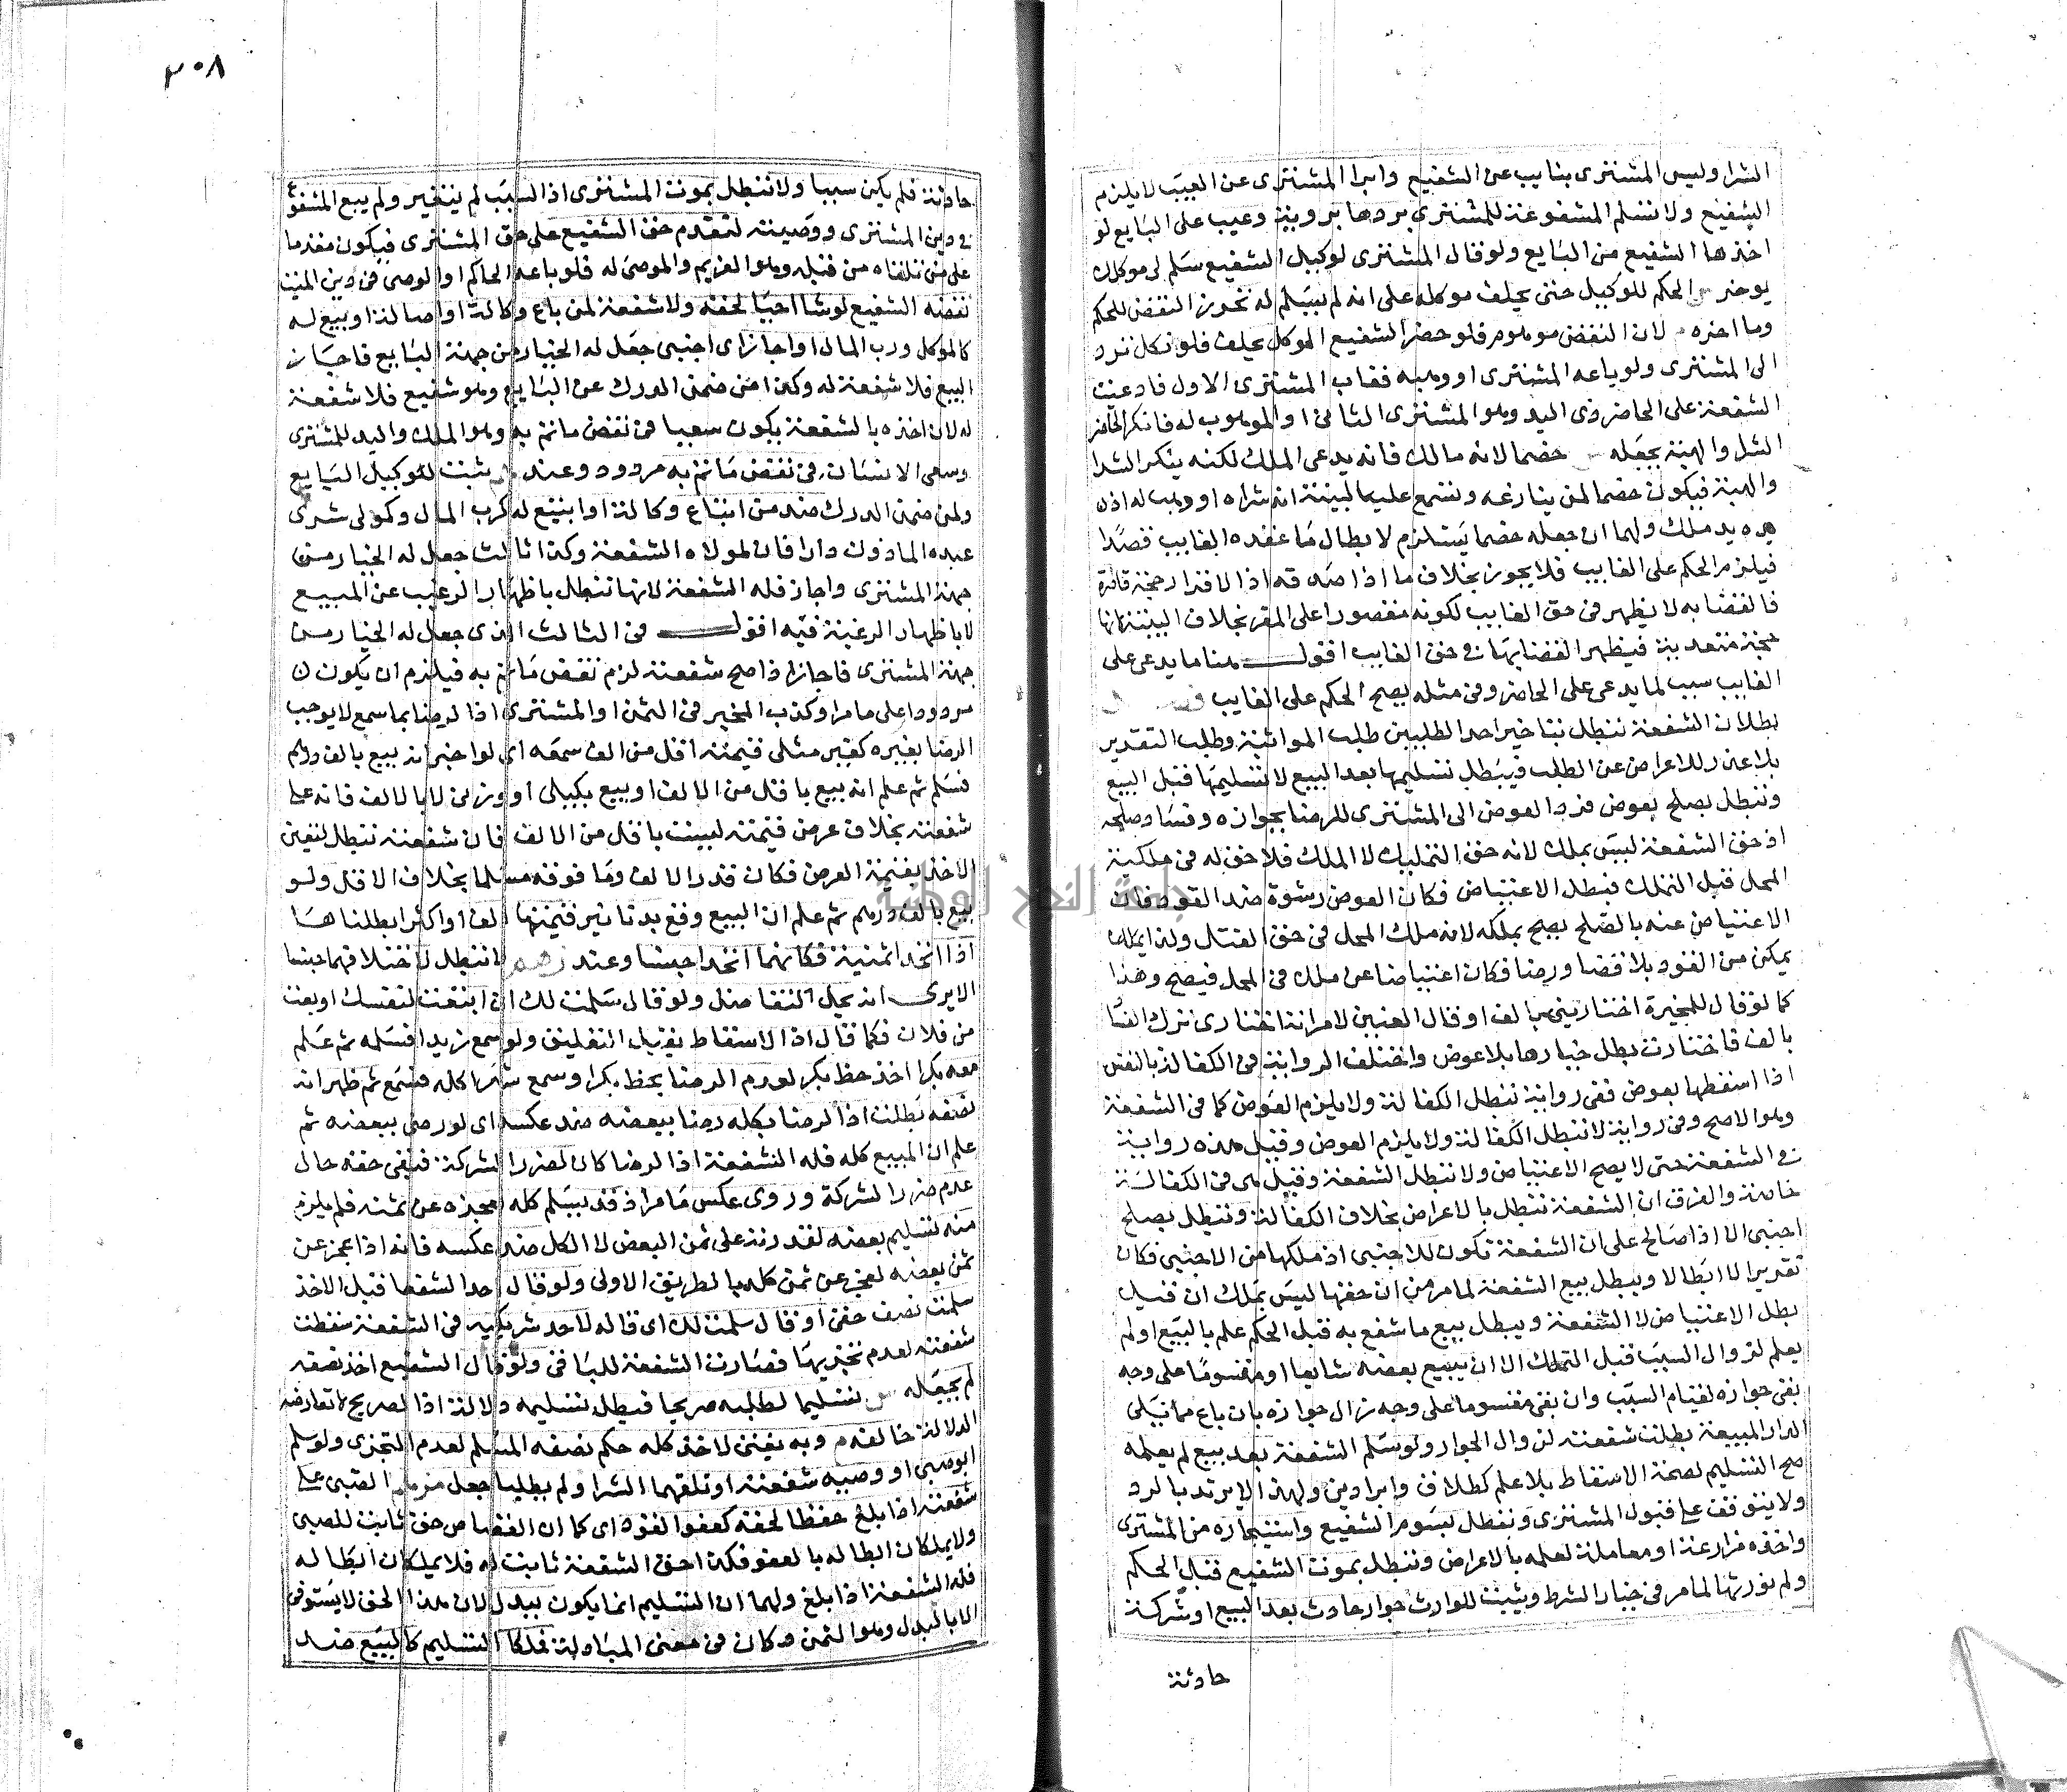 الشرا وليس المشترى بنايب عن الشفيع وابرا المشترى عن العيب لا يلزم
الشفيع ولا تسلم المشفوعة للمشترى بردها بروية وعيب على البايع لو
اخذها الشفيع من البايع ولو قال المشترى لوكيل الشفيع سلم لى موكلك
يوخر الحكم للوكيل حتى يحلف موكله على انه لم يسلم له تحرزا لنقض للحكم
وما اخره لان النقض موهوم فلو حضر الشفيع الموكل يحلف فلو نكل ترد
الى المشترى ولو باعه المشترى او وهبه فغاب المشترى الاول فادعيت
الشفعة على الحاضر ذى اليد وهو المشترى الثانى او الموهوب له فانكر الحاضر
الشرا والهبة يجعله خصما لانه مالك فانه يدعى الملك لكنه ينكر الشرا
والهبة فيكون خصما لمن ينازعه وتسمع عليه البينة انه شراه او وهب له اذن
يده يد ملك ولهما ان جعله خصما يستلزم لابطال ما عقده الغايب قصدا
فيلزم الحكم على الغايب فلا يجوز بخلاف ما اذا صدقه اذ الاقرار حجة قاصرة
فالقضا به لا يظهر فى حق الغايب لكونه مقصورا على المقر بخلاف البينة فانها
حجة متعدية فيظهر القضا بها فى حق الغايب اقول هنا ما يدعى على
الغايب سبب لما يدعى على الحاضر وفى مثله يصح الحكم على الغايب
بطلان الشفعة تبطل بتاخير احد الطلبين طلب المواثبة وطلب التقرير
بلا عذر للاعراض عن الطلب فيبطل تسليمها بعد البيع لا تسليمها قبل البيع
وتبطل بصلح بعوض فرد العوض الى المشترى للرضا بجوازه وفساد صلحه
اذ حق الشفعة ليس بملك لانه حق التمليك لا الملك فلا حق له فى ملكية
المحل قبل التملك فبطل الاعتياض فكان العوض رشوة ضد القود فان
الاعتياض عنه بالصلح يصح بملكه لانه ملك المحل فى حق القتل ولذا يملك
يمكن من القود بلا قضا ورضا فكان اعتياضا عن ملك فى المحل فيصح وهذا
كما لو قال للمخيرة اختارينى بالف او قال العنين لامراته اختارى ترك الفسخ
بالف فاختارت بطل خيارها بلا عوض واختلف الرواية فى الكفالة بالنفس
اذا اسقطها بعوض ففى رواية تبطل الكفالة ولا يلزم العوض كما فى الشفعة
وهو الاصح وفى رواية لا تبطل الكفالة ولا يلزم العوض وقيل هذه رواية
فى الشفعة حتى لا يصح الاعتياض ولا تبطل الشفعة وقيل هى فى الكفالة
خاصة والفرق ان الشفعة تبطل بالاعراض بخلاف الكفالة وتبطل بصلح
اجنبى الا اذا صالح على ان الشفعة تكون للاجنبى اذ ملكها من الاجنبى فكان
تقديرا لا ابطالا ويبطل بيع الشفعة لما مر من ان حقها ليس بملك ان قيل
بطل الاعتياض لا الشفعة ويبطل ببيع ما شفع به قبل الحكم علم بالبيع او لم
يعلم لزوال السبب قبل التملك الا ان يبيع بعضه شايعا او مقسوما على وجه
بقى جوازه لقيام السبب وان بقى مقسوما على وجه زال جوازه بان باع مما تيلى
الدار المبيعة بطلت شفعته لزوال الجوار ولو سلم الشفعة بعد بيع لم يعلمه
صح التسليم لصحة الاسقاط بلا علم كطلاق وابرا دين ولهذا لا يرتد بالرد
ولا يتوقف على قبول المشترى وتبطل بسوم الشفيع واستيجاره من المشترى
واخذه مزارعة او معاملة لعلمه بالاعراض وتبطل بموت الشفيع قبل الحكم
ولم نورثها لما مر فى خيار الشرط ويثبت للوارث جوار حادث بعد البيع او شركة
حادثة
٣٠٨
حادثة فلم يكن سببا ولا تبطل بموت المشترى اذ السبب لم يتغير ولم يبع المشفوع
فى دين المشترى ووصيته لتقدم حق الشفيع على حق المشترى فيكون مقدما
على من تلقاه من قبله وهو الغريم والموصى له فلو باعه الحاكم او الوصى فى دين الميت
نقضه الشفيع لو شا احيا لحقه ولا شفعة لمن باع وكالة او اصالة او بيع له
كالموكل ورب المال او اجاز اى اجنبى جعل له الخيار من جهة البايع فاجاز
البيع فلا شفعة له وكذا من ضمن الدرك عن البايع وهو شفيع فلا شفعة
له لان اخذه بالشفعة يكون سعيا فى نقض ما تم به وهو الملك واليد للمشترى
وسعى الانسان فى نقض ما تم به مردود وعند يثبت للوكيل البايع
ولمن ضمن الدرك ضد من ابتاع وكالة او ابتيع له كرب المال وكمولى شرى
عبده الماذون دارا فان لمولاه الشفعة وكذا ثالث جعل له الخيار من
جهة المشترى واجاز فله الشفعة لانها تبطل باظهار الرغبة عن المبيع
لا باظهار الرغبة فيه اقول فى الثالث الذى جعل له الخيار من
جهة المشترى فاجاز اذا صح شفعته لزم نقض ما تم به فيلزم ان يكون
مردودا على ما مر او كذب المخبر فى الثمن او المشترى اذ الرضا بما سمع لا يوجب
الرضا بغيره كغير مثلى قيمته اقل من الف سمعه اى لو اخبر انه بيع بالف درهم
فسلم ثم علم انه بيع باقل من الالف او بيع بكيلى او وزنى لا بالالف فانه على
شفعته بخلاف عرض قيمته ليست باقل من الالف فان شفعته تبطل لتعين
الاخذ بقيمة العرض فكان قدر الالف وما فوقه مسلما بخلاف الاقل ولو
بيع بالف درهم ثم علم ان البيع وقع بدنانير قيمتها الف او اكثر ابطلناها
اذا اتحدا ثمنية فكانهما اتحدا جنسا وعند زفر لا تبطل لاختلافهما جنسا
الا يرى انه يحل التفاضل ولو قال سلمت لك ان ابتعت لنفسك او بعت
من فلان فكما قال اذ الاسقاط يقبل التعليق ولو سمع زيدا فسلمه ثم علم
معه بكرا اخذ حظ بكر لعدم الرضا بحظ بكر او سمع شرا كله فسمع ثم ظهر انه
نصفه بطلت اذ الرضا بكله رضا ببعضه ضد عكسه اى لو رضى ببعضه ثم
علم ان المبيع كله فله الشفعة اذ الرضا كان لضرر الشركة فبقى حقه حال
عدم ضرر الشركة وروى عكس ما مر اذ قد يسلم كله لعجزه عن ثمنه فلم يلزم
منه تسليم بعضه لقدرته على ثمن البعض لا الكل ضد عكسه فانه اذا عجز عن
ثمن بعضه لعجز عن ثمن كله بالطريق الاولى ولو قال احد الشفعا قبل الاخذ
سلمت نصف حقى او قال سلمت لك اى قاله لاحد شريكيه فى الشفعة سقطت
شفعته لعدم تجزيها فصارت الشفعة للباقى ولو قال الشفيع اخذ نصفه
لم يجعله تسليما لطلبه صريحا فبطل تسليمه دلالة اذ الصريح لا تعارضه
الدلالة خالفه وبه يفتى لاخذ كله حكم نصفه المسلم لعدم التجزى ولو سلم
ابو صبى او وصيه شفعته او تلقهما الشرا ولم يطلبا جعل الصبى على
شفعته اذا بلغ حفظا لحقه كعفو القود اى كما ان القصاص حق ثابت للصبى
ولا يملكان ابطاله بالعفو فكذا حق الشفعة ثابت له فلا يملكان ابطاله
فله الشفعة اذا بلغ ولهما ان التسليم انما يكون ببدل لان هذا الحق لا يستوفى
الا بالبدل وهو الثمن وكان فى معنى المبادلة فملكا التسليم كالبيع ضد
جامعة النجاح الوطنية